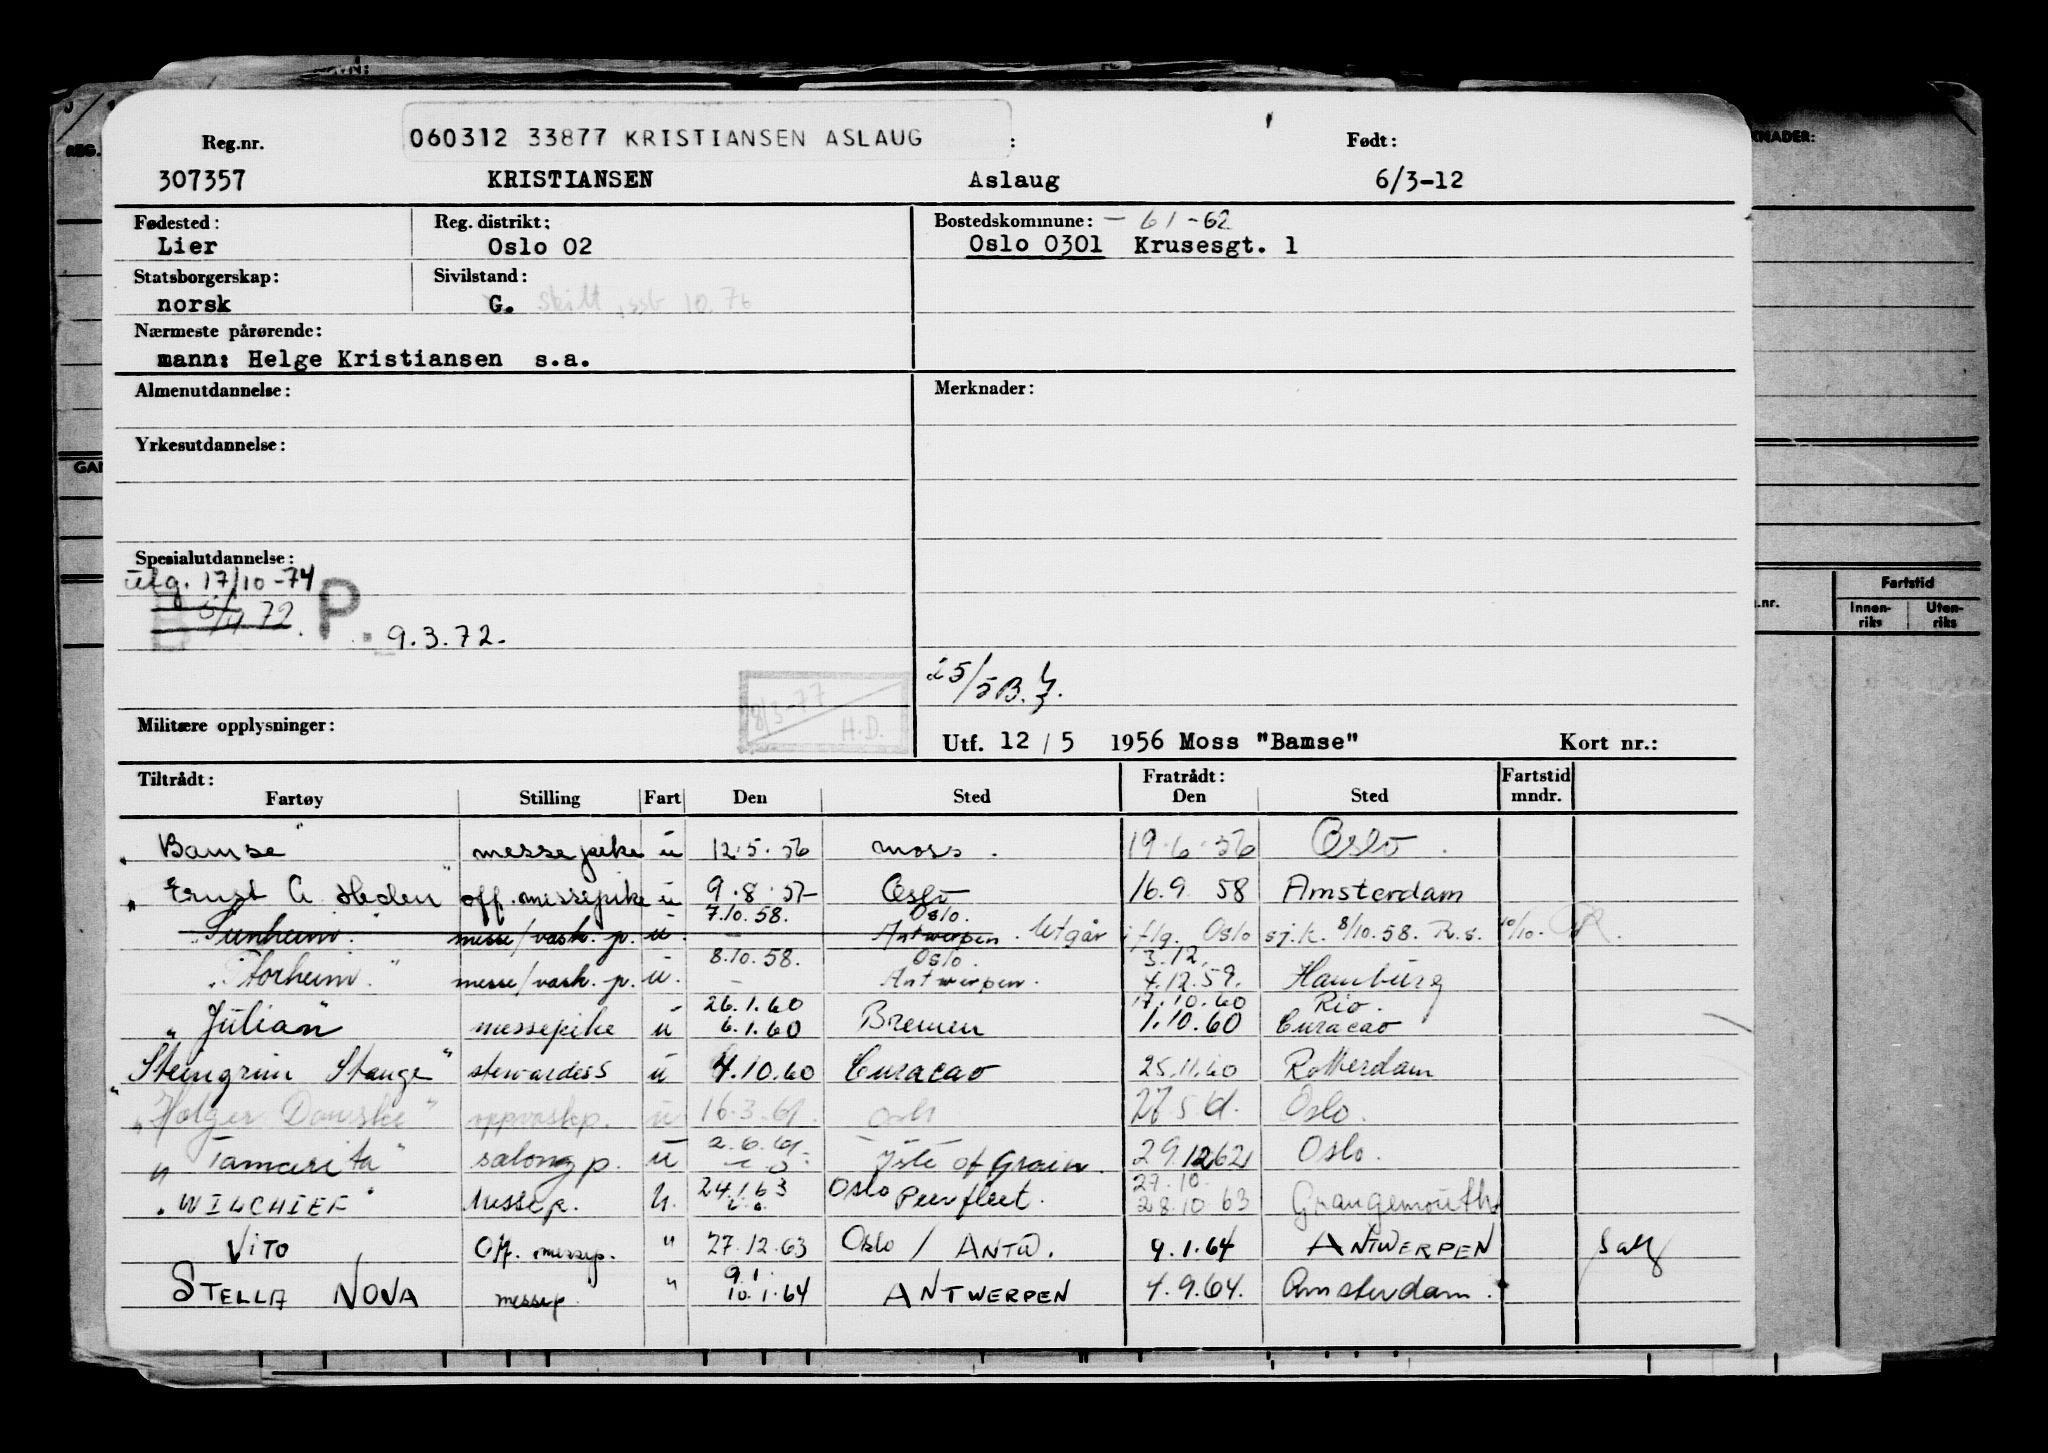 060312 33877 KRISTIANSEN ASLAUG
Reg.nr. : Født:
307357 KRISTIANSEN Aslaug 6/3-12
Fødested: Reg. distrikt: Bostedskommune: - 61-62
Lier Oslo 02 Oslo 0301 Krusesgt. 1
Statsborgerskap: Sivilstand:
norsk G. skilt, ssb 10.76
Nærmeste pårørende:
mann: Helge Kristiansen s.a.
Almenutdannelse: Merknader:
Yrkesutdannelse:
Spesialutdannelse:
utg. 17/10-74
5/11 72. P. 9.3.72.
25/5 B.
8/3-77 H.D.
Militære opplysninger: Utf. 12/5 1956 Moss "Bamse" Kort nr.:
Tiltrådt: Fratrådt: Fartstid
Fartøy Stilling Fart Den Sted Den Sted mndr.
"Bamse" messepike u 12.5.56 Moss. 19.6.56 Oslo.
"Ernst G. Heden" off. messepike u 9.8.57 Oslo 16.9 58 Amsterdam
7.10.58. Oslo.
"Sunheim" messe/vask. p. u. - Antwerpen. Utgår iflg. Oslo sj.k. 8/10.58. R.s. 10/10.
8.10.58. Oslo. 3.12.
"Torheim" messe/vask. p. u. - Antwerpen. 4.12.59. Hamburg
26.1.60 17.10.60 Rio.
"Julian" messepike u 6.1.60 Bremen 1.10.60 Curacao
"Steingrim Stange" stewardess u 4.10.60 Curacao 25.11.60 Rotterdam
"Holger Danske" oppvaskp. u 16.3.61. Oslo 27.5.61. Oslo.
2.6.61.
"Tamarita" salongp. u Isle of Grain. 29.12.62 Oslo.
24.1.63 Oslo 27.10
"WILCHIEF" Messep. u. Purfleet. 28.10.63 Grangemouth
VITO Off. messep. " 27.12.63 Oslo / ANTW. 9.1.64 ANTWERPEN
9.1.
STELLA NOVA messep. " 10.1.64 ANTWERPEN 4.9.64. Amsterdam.
REG.
KNADER:
GAN
Fartstid
.nr. Innen- Uten-
riks riks